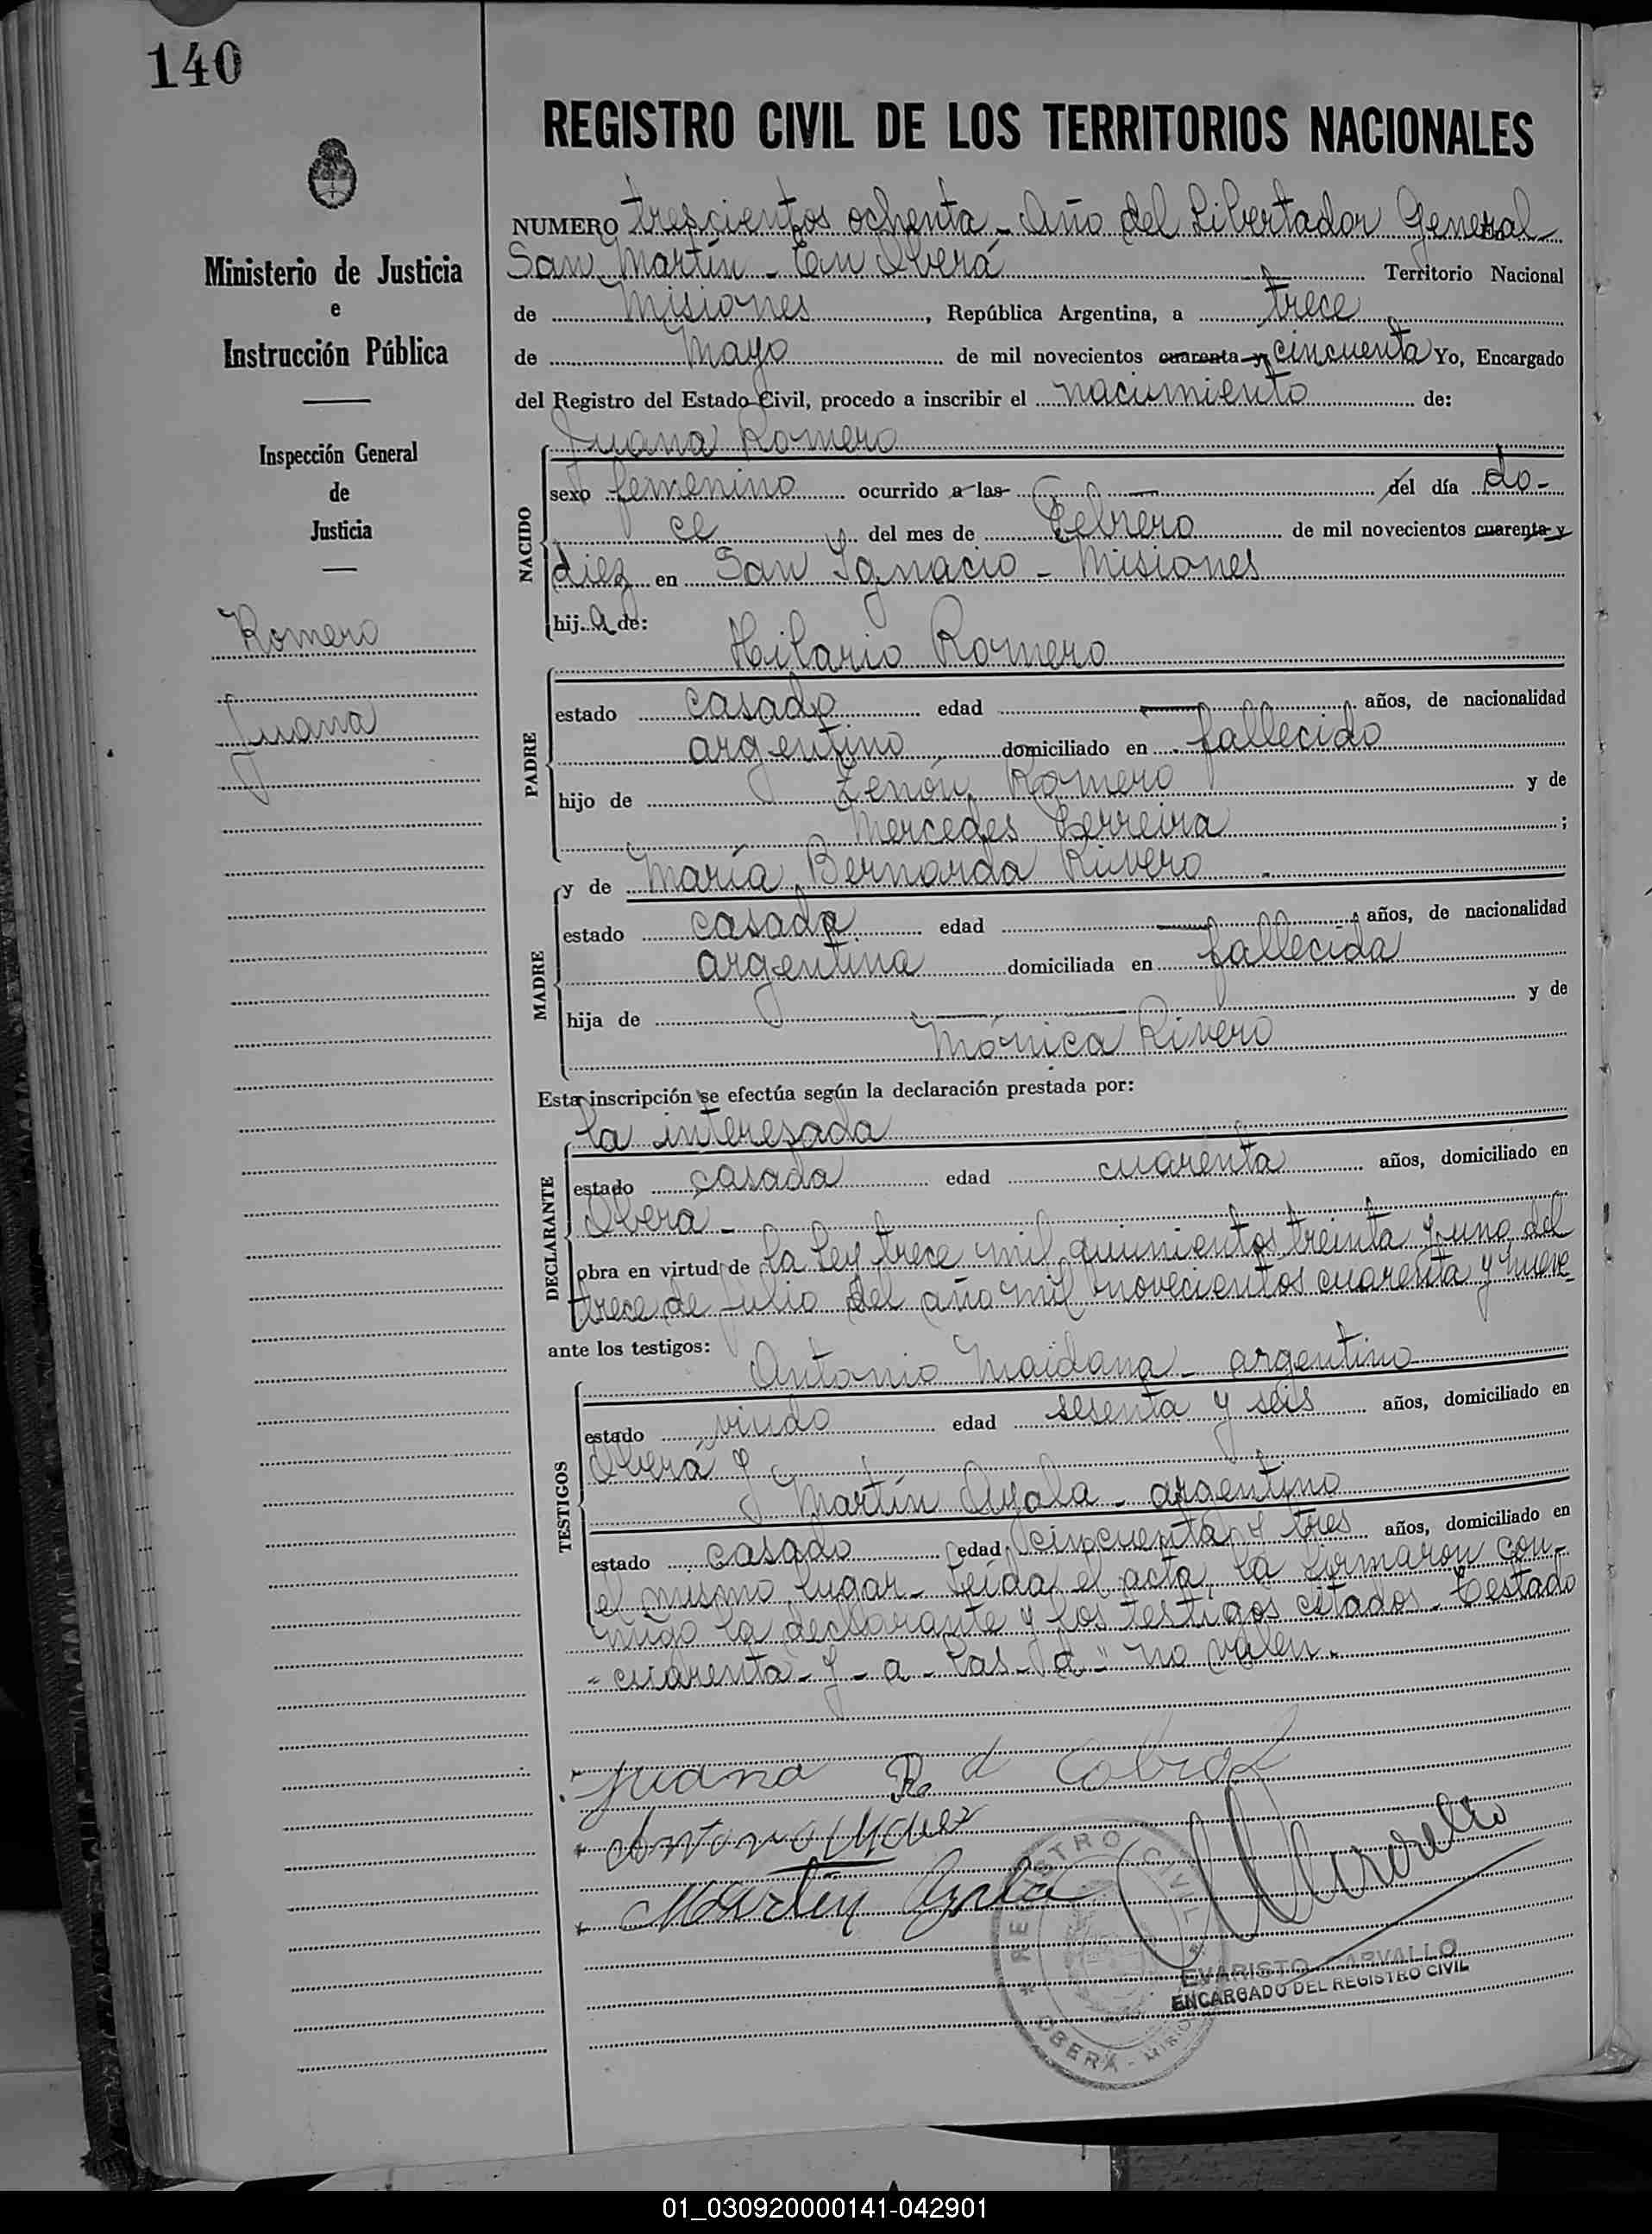 140
REGISTRO CIVIL DE LOS TERRITORIOS NACIONALES
Ministerio de Justicia
e
Instrucción Pública
Inspección General
de
Justicia
Romero
Juana
NUMERO trescientos ochenta - Año del Libertador General
San Martín - En Oberá Territorio Nacional
de Misiones, República Argentina, a trece
de Mayo de mil novecientos cuarenta y cincuenta Yo, Encargado
del Registro del Estado Civil, procedo a inscribir el nacimiento de:
NACIDO
Juana Romero
sexo femenino ocurrido a las — del día do-
ce del mes de Febrero de mil novecientos cuarenta y
diez en San Ignacio - Misiones
hij a de:
PADRE
Hilario Romero
estado casado edad — años, de nacionalidad
argentino domiciliado en fallecido
hijo de Zenón Romero y de
Mercedes Ferreira ;
MADRE
y de María Bernarda Rivero
estado casada edad — años, de nacionalidad
argentina domiciliada en fallecida
hija de — y de
Mónica Rivero
Esta inscripción se efectúa según la declaración prestada por:
DECLARANTE
la interesada
estado casada edad cuarenta años, domiciliado en
Oberá -
obra en virtud de la Ley trece mil quinientos treinta y uno del
trece de Julio del año mil novecientos cuarenta y nueve
ante los testigos:
TESTIGOS
Antonio Maidana - argentino
estado viudo edad sesenta y seis años, domiciliado en
Oberá y
Martín Ayala - argentino
estado casado edad cincuenta y tres años, domiciliado en
el mismo lugar - Leída el acta, la firmaron con-
migo la declarante y los testigos citados - Testado
"cuarenta - y - a - las - d" no valen.
Juana R d Cabral
Antonio
Martin Ayala
REGISTRO CIVIL
OBERÁ -
EVARISTO CARVALLO
ENCARGADO DEL REGISTRO CIVIL
01_030920000141-042901